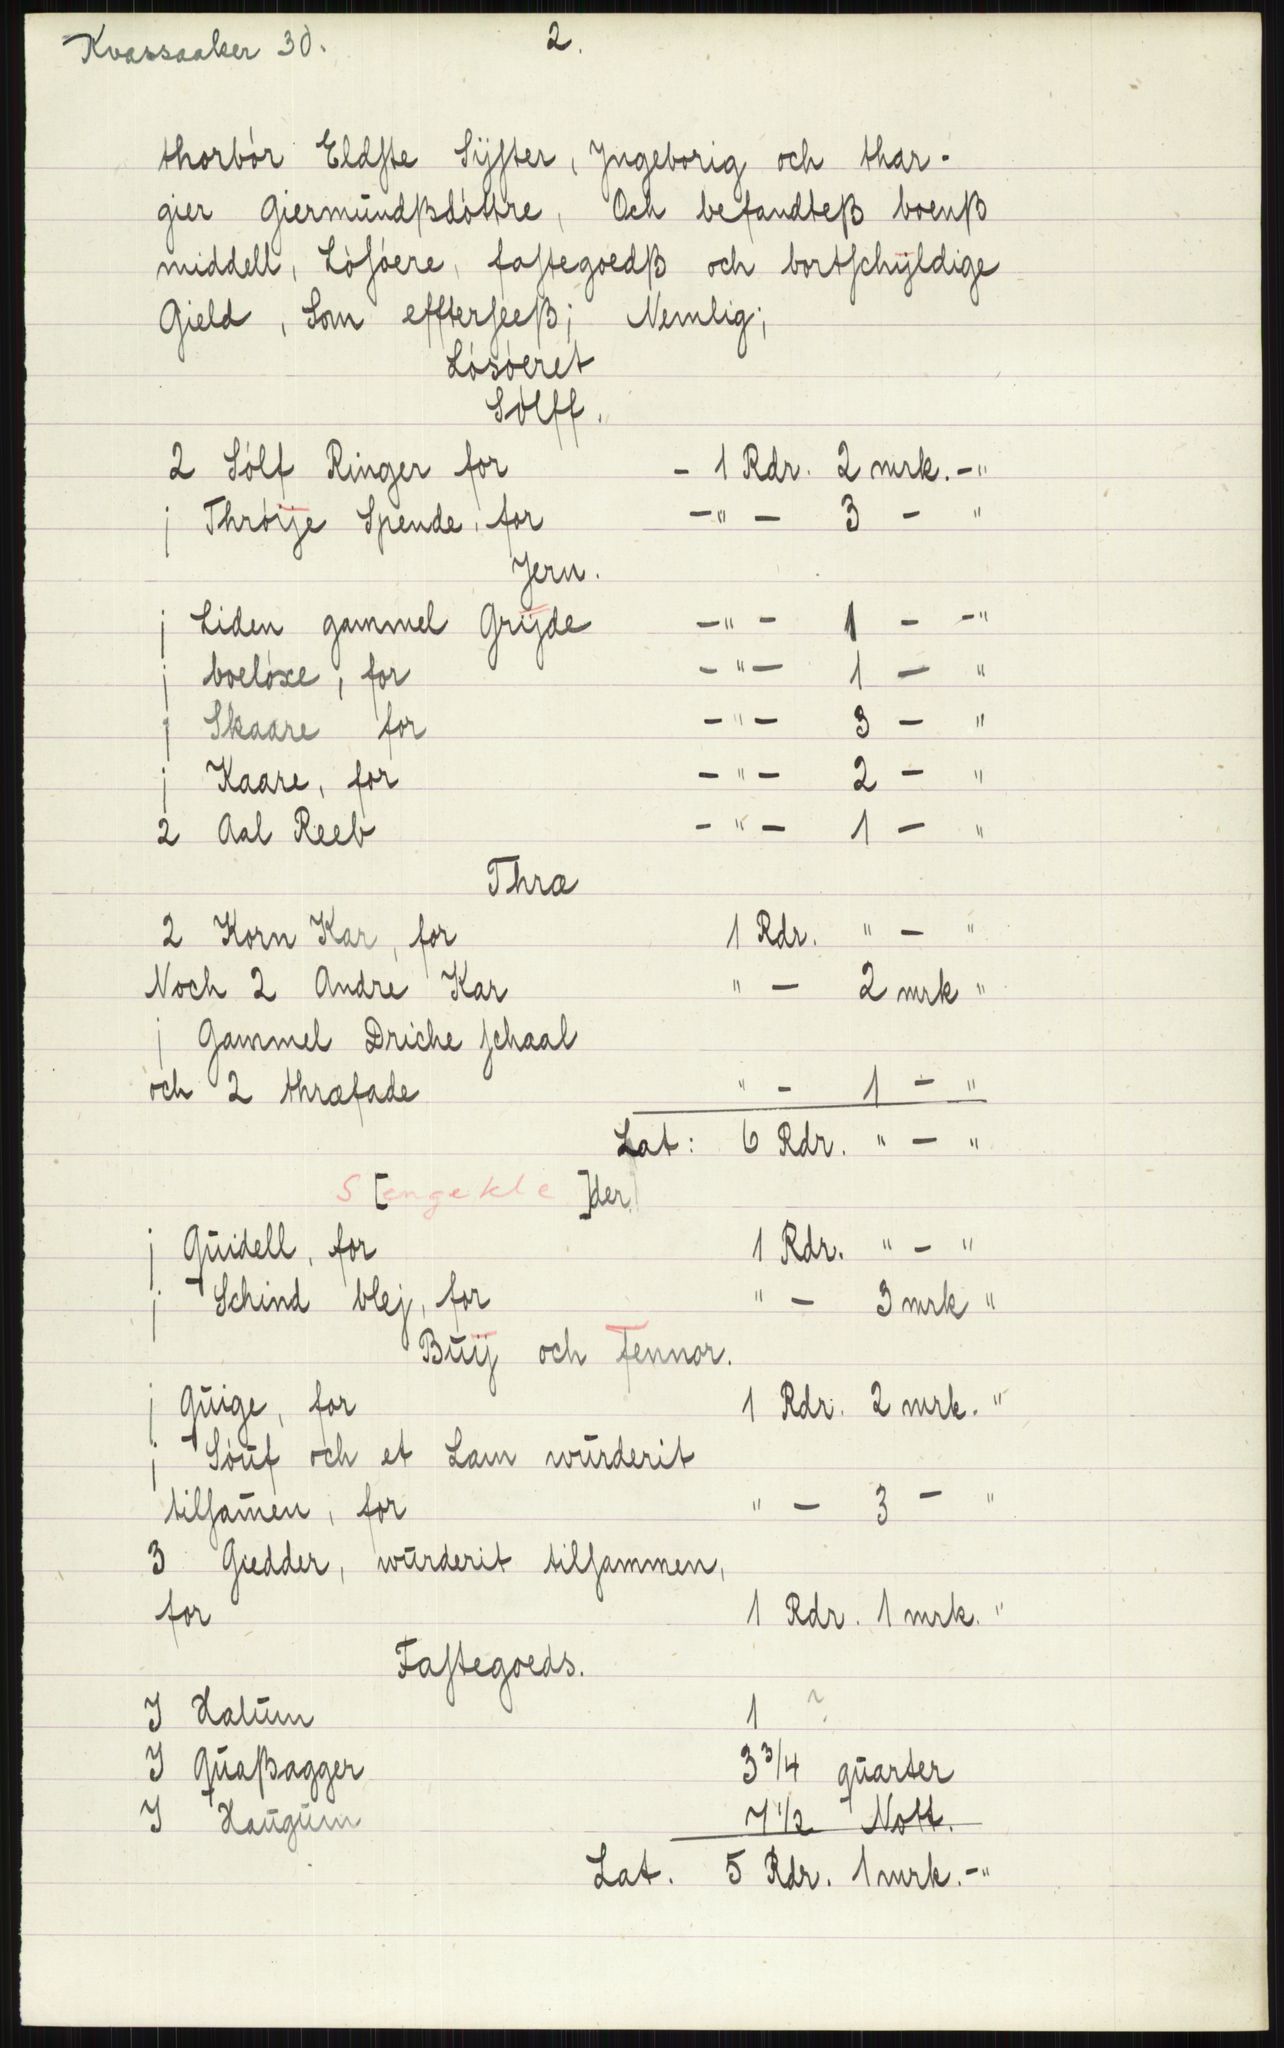 Kvassaaker 30.
2.
thorbór Eldſte Sÿſter, Jngeborig och thar-
gier Giermŭndßdóttre, Och befandteß boenß
middell, Lóſóere, faſtegoedß och bortſchÿldige
Gield, Som effterſeeß; Nemlig;
Lósóeret
Sólff.
2 Sólf Ringer for - 1 Rdr. 2 mrk. - "
j Thróije Spende, for - " - 3 - "
Jern.
j Liden gammel Grijde - " - 1 - - "
j boelóxe, for - " - 1 - "
j Skaare for - " - 3 - "
j Kaare, for - " - 2 - "
2 Aal Reeb - " - 1 - "
Thræ
2 Korn Kar, for 1 Rdr. " - "
Noch 2 Andre Kar " - 2 mrk "
j Gammel Driche ſchaal
och 2 thræfade " - 1 - "
Lat: 6 Rdr. " - "
S[engekle]der
j Qŭidell, for 1 Rdr. " - "
j Schind blej, for " - 3 mrk "
Bŭij och Fennor.
j Qŭige, for 1 Rdr. 2 mrk. "
j Sóŭf och et Lam wŭrderit
tilſam̄en, for " - 3 - "
3 Giedder, wŭrderit tilſammen,
for 1 Rdr. 1 mrk. "
Faſtegoeds.
J Halŭm 1 ?
J Qŭaßagger 3 3/4 qŭarter
J Haŭgŭm 7 1/2 Nott.
Lat. 5 Rdr. 1 mrk. - "